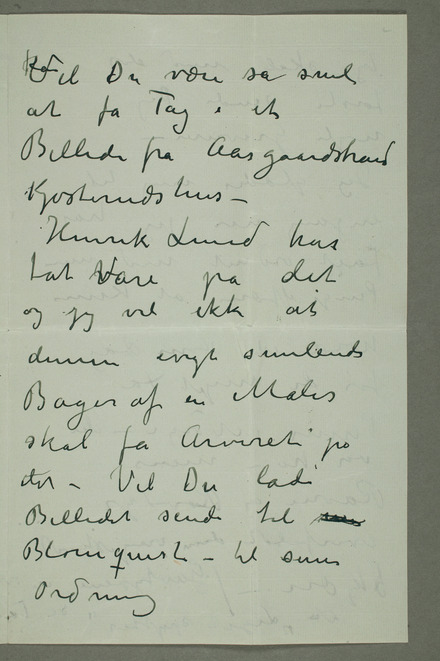 Vil Du være så snil
at få Tag i et
Billede fra Aasgaardstrand
Kjøsterudshus –
Henrik Lund har
tat Vare på det
og jeg vil ikke at
denne evigt smilende
Bager af en Maler
skal få Arveret på
det – Vil Du lade
Billedet sende til
Blomquist – til
Ordning